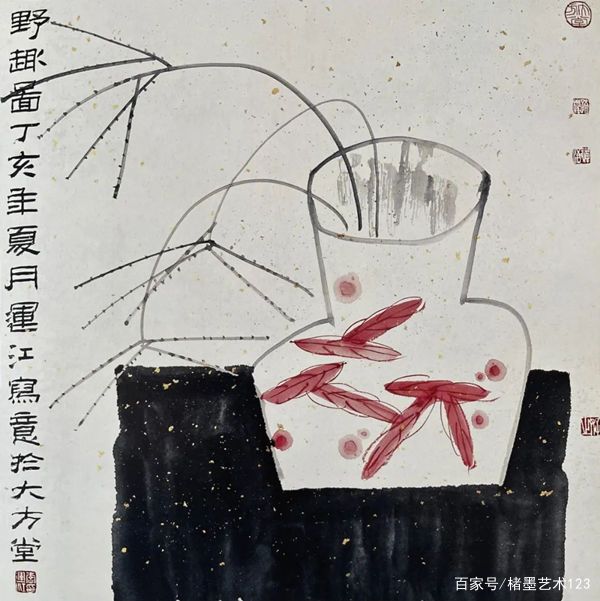 野趣啚丁亥年夏月運江寫意於大方堂
百家号/楮墨艺术123